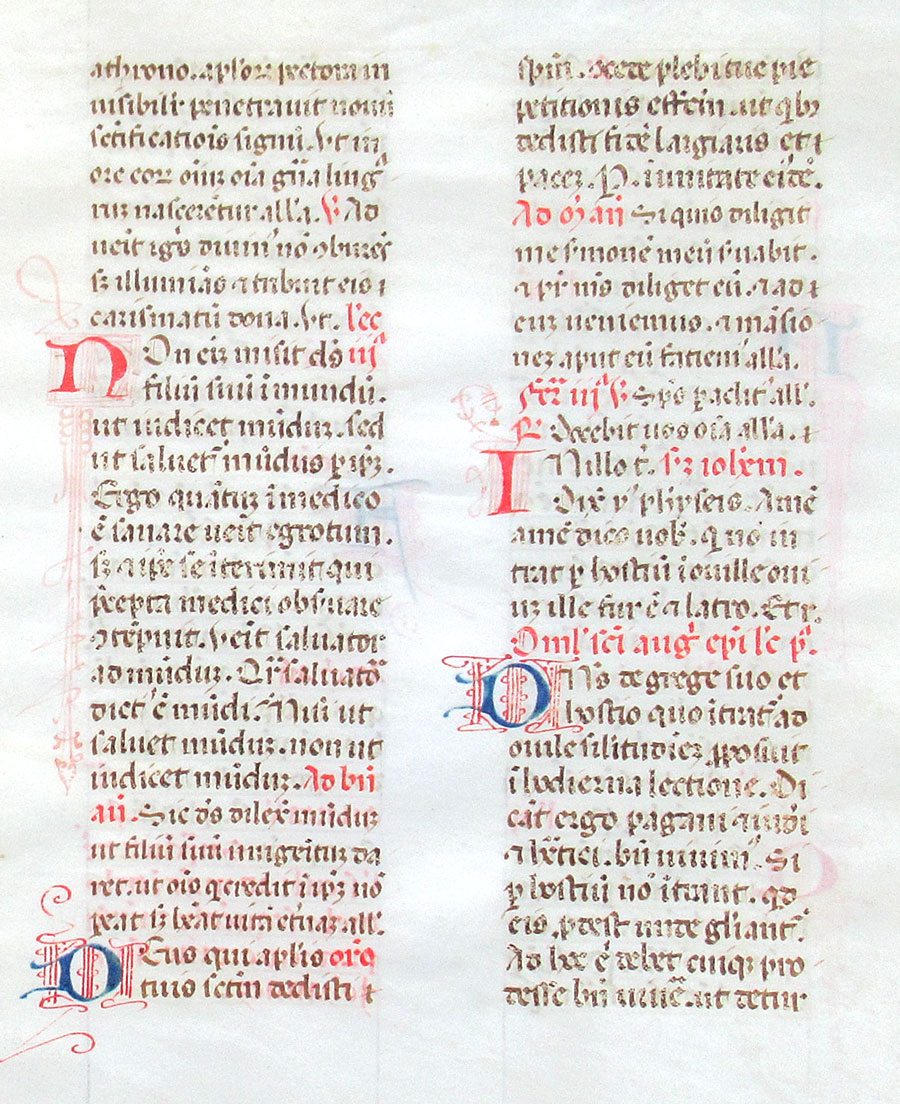 athrono. aplor̄ pectora in
uisibilit̾ penetrauit nouū
sc̄tificatiōis signū. Vt in
ore eor̄ oīuꝫ oīa gn̄a linguaꝝ
ruꝫ nascerētur all'a. V Ad
ueīt igr̄ diuinꝰ nō ↄburēs
sꝫ illuminās ⁊ tribuit eis ⁊
carismatū dona. Vt. lec̄
NOn eiꝫ misit ds̄ iijᵃ
filiū suū ī mundū.
ut iudicet mūduꝫ. sed
ut saluet̄ mūdus ꝑ ip̄ꝫ.
Ergo quātuꝫ ī medico
ē sanare ueīt egrotum.
sꝫ ⁊ ip̄e se īterimit qui
p̄cepta medici obsuare
ↄtēpnit. Veīt saluator
ad mūduꝫ. Qr̄ saluatō
dictꝰ ē mūdi. Nisi ut
saluet mūduꝫ. non ut
iudicet mūduꝫ. Ad bn̄
aū. Sic ds̄ dilex̄ mūduꝫ
ut filiū suū unigenituꝫ da
ret. ut oīs q̄ credit ī ip̄ꝫ nō
ꝑeat sꝫ h̄eat uitā et̄naꝫ all'.
DEus qui aplis orō
tuis sc̄tm dedisti ⁊
sp̄m. ɔcede plebi tue pie
petitionis effcm̄. ut qbꝫ
dedisti fidē largiaris et ⁊
paceꝫ. P. ī unitate eiꝰdē.
Ad oꝫ aū Si quis diligit
me s'monē meū s'uabit.
⁊ pr̄ mꝰs diliget eū. ⁊ ad ⁊
euꝫ ueniemus. ⁊ māsio
neꝫ aput eū faciemꝰ all'a.
Fer̄ iijᵃ V Sps̄ ꝑaclitꝰ all'.
R Docebit uos oīa all'a. ⁊
INillo t̄. sꝫ iolx̄m.
Dix̄ yꝰ physeis. Amē
amē dico uob̄. q nō in
trat ꝑ hostiū ī ouille oui
uꝫ ille fur ē ⁊ latro. Et r̄.
Oml' sc̄i augꝰ ep̄i lc̄ pᵃ.
DNs̄ de grege suo et
hostio quo ītrat̄ ad
ouile silitudieꝫ ꝓposuit
ī hodierna lectione. Di
cāt ergo pagani ⁊ iudi
⁊ h̄tici. bn̄ uiuimꝰ. Si
ꝑ hostiū nō ītrant. qd
eis ꝓdest unde gliant̄.
Ad hoc ē debet cuiqꝫ pro
desse bn̄ uiuē. ut detur